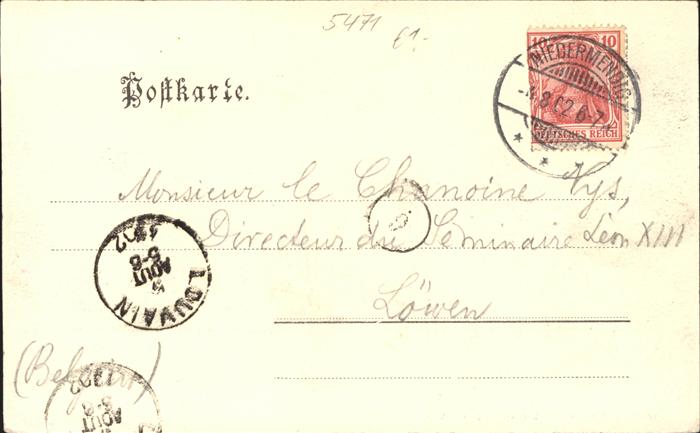 5471
61.-
10 10
NIEDERMENDIG
8 02 6-7
DEUTSCHES REICH
Postkarte.
Monsieur le Chanoine Nys,
Directeur du Séminaire Léon XIII
Löwen
LOUVAIN
AOUT
5-6
1902
(Belgien)
AOUT
5-6
1902